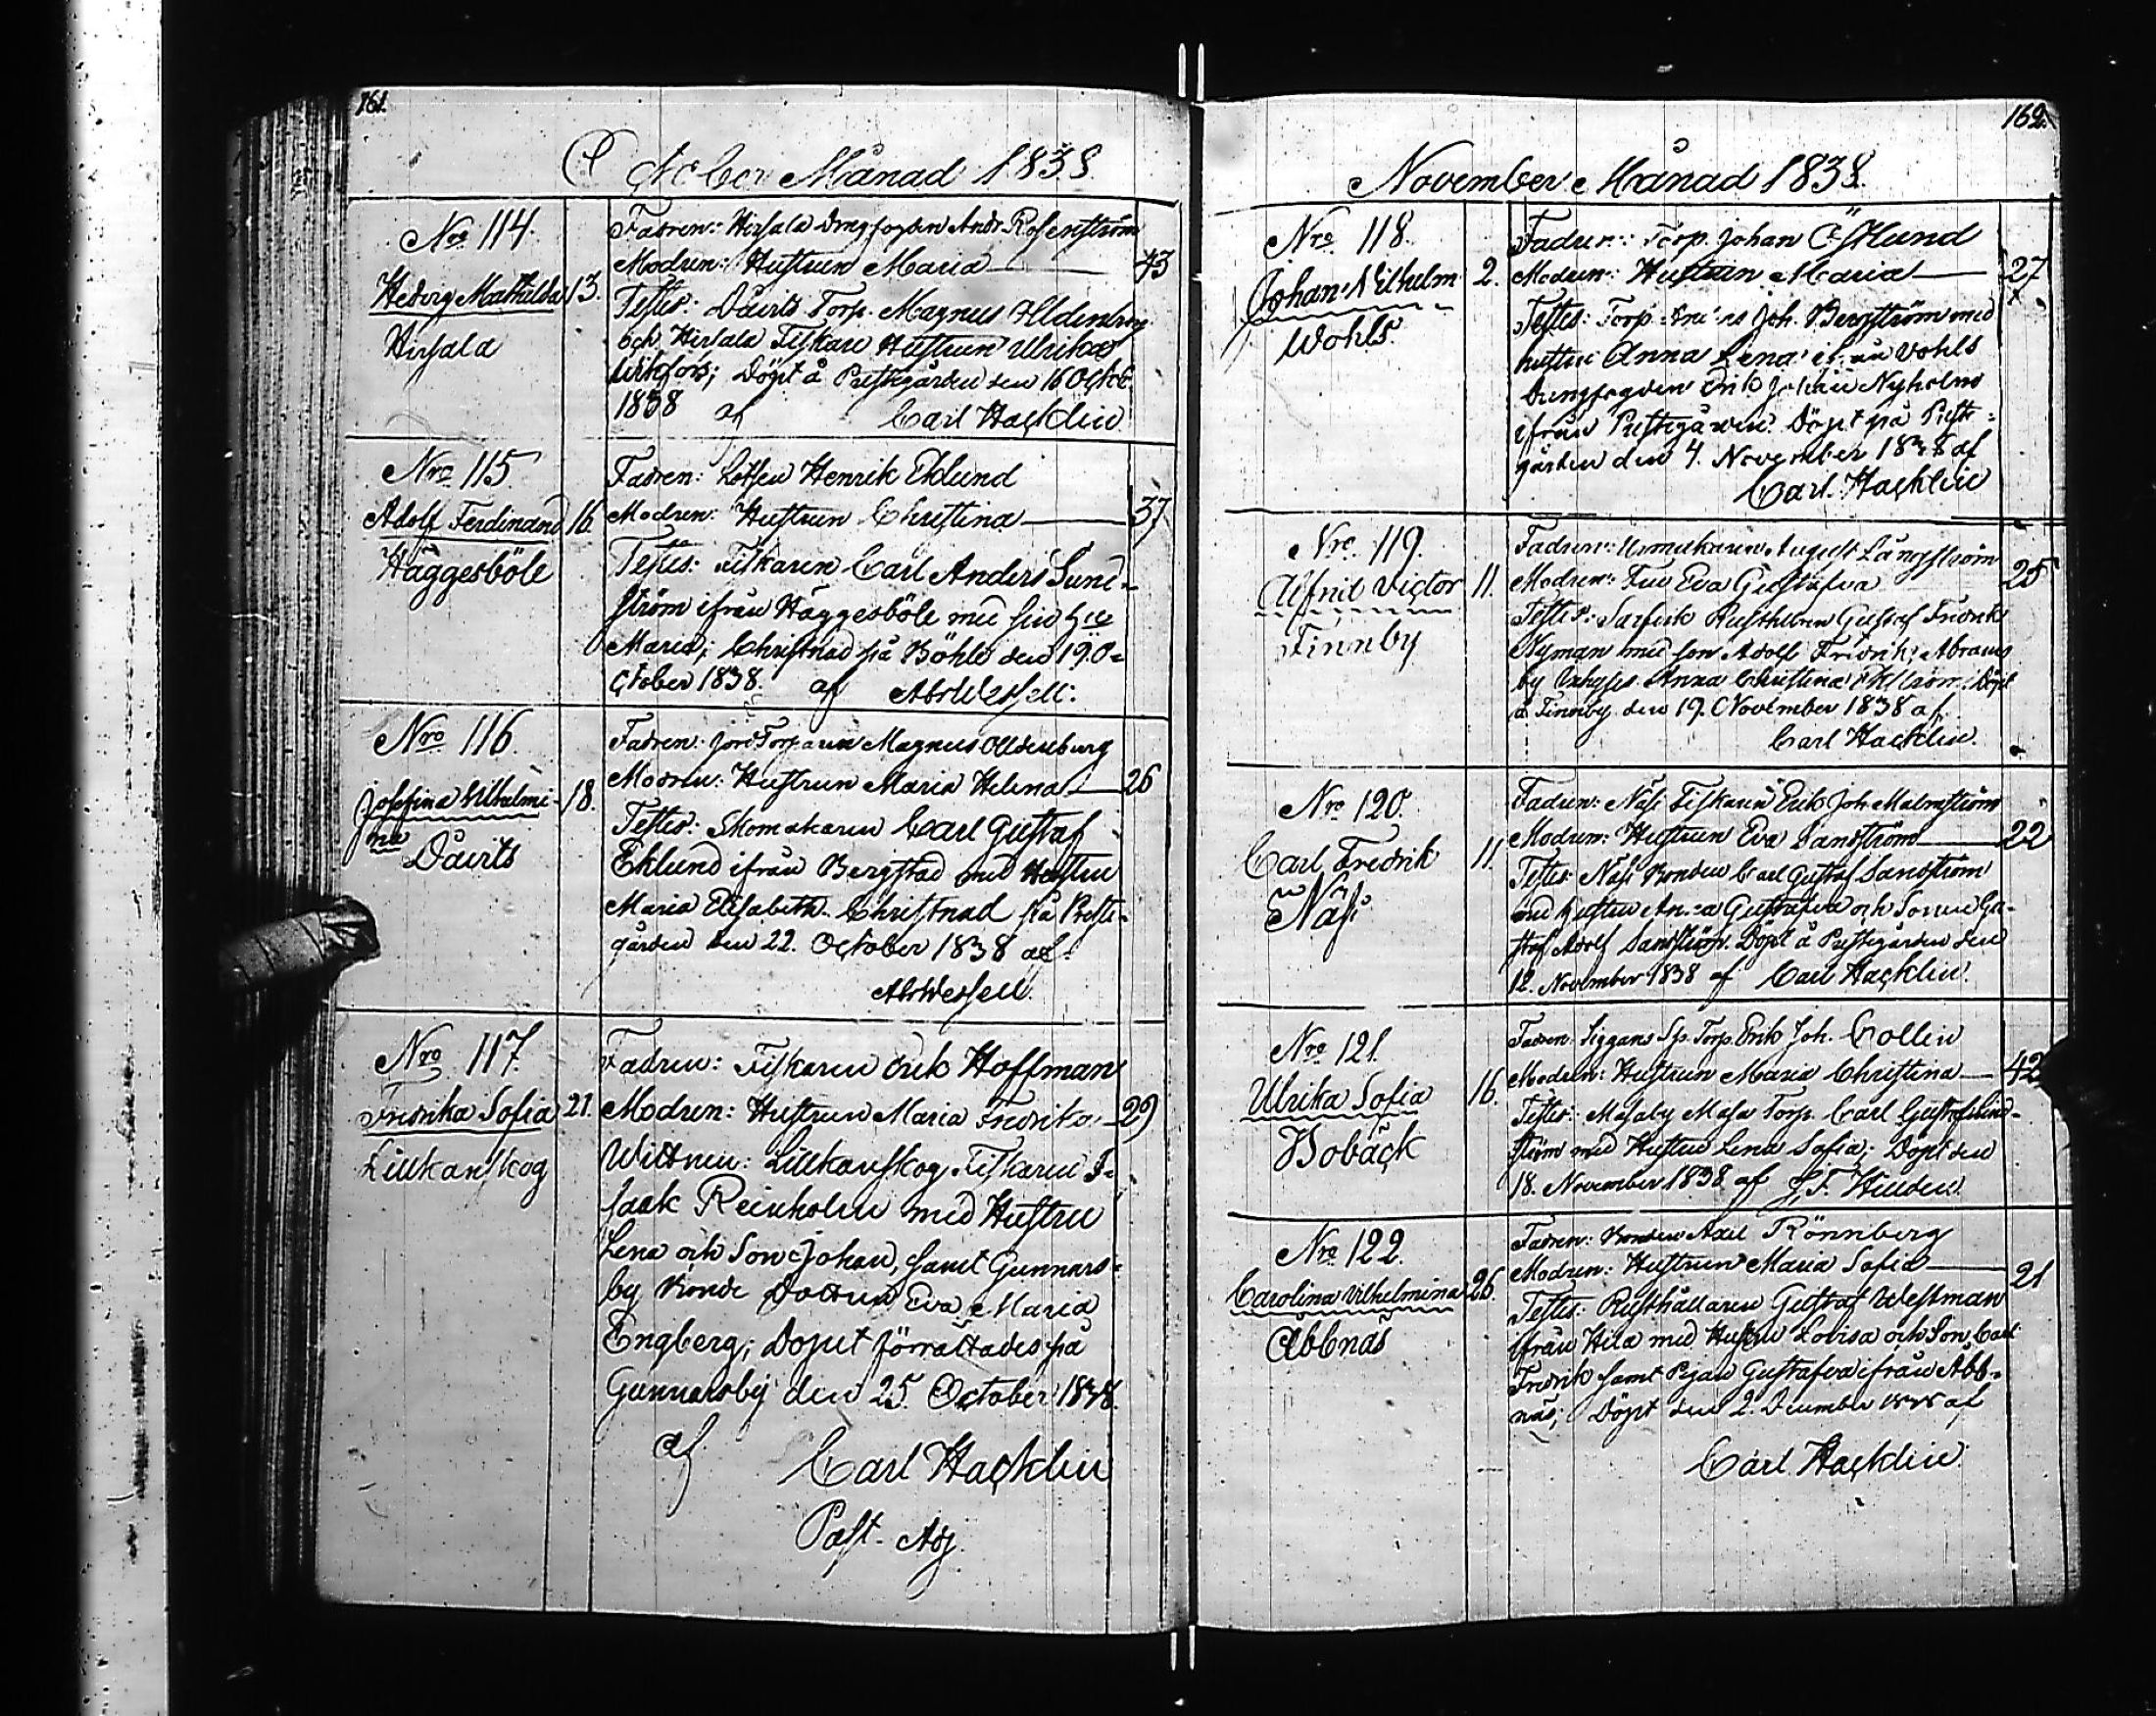 161.
October Månad 1838.
Nro 114.
Hedvig Mathilda 13.
Hirsala
Fadren: Hirsala Drängfogden Andr. Rosenström
Modren: Hustrun Maria — 43
Testes: Dävits Torp. Magnus Olldenburg
och Hirsala Fiskare Hustrun Ulrika
; Döpt å Prestegården den 16 Octob.
1838 af Carl Hacklin
Nro 115
Adolf Ferdinand 16.
Häggesböle
Fadren: Lotsen Henrik Eklund
Modren: Hustrun Christina — 37
Testes: Fiskaren Carl Anders Sund-
ström ifrån Häggesböle med sin H:u
Maria; Christnad på Böhle den 19. O-
ctober 1838. af Abr Wessell:
Nro 116.
Josefina Vilhelmi- 18.
na
Dävits
Fadren: Jord Torparen Magnus Olldenburg
Modren: Hustrun Maria Helena — 26
Testes: Skomakaren Carl Gustaf
Eklund ifrån Bergstad med Hustru
Maria Elisabeth. Christnad på Preste-
gården den 22. October 1838 af
Abr Wessell.
Nro 117.
Fredrika Sofia 21.
Lillkanskog
Fadren: Fiskaren Erik Hoffman
Modren: Hustrun Maria Fredrika — 29
Wittnen: Lillkanskog Fiskaren I-
saak Reinholm med Hustru
Lena och Son Johan, samt Gunnars-
by Bonde Dottren Eva Maria
Engberg; Dopet förrättades på
Gunnarsby den 25. October 1838.
af
Carl Hacklin
Past. Adj.
162.
November Månad 1838.
Nro 118.
Johan Vilhelm 2.
Wohls.
Fadren: Torp. Johan Östlund
Modren: Hustrun Maria — 27
x
Testes: Torp. Joh. Bergström med
hustru Anna Lena ifrån Vohls
Drängfogden Erik Johan Nyholm
ifrån Prestegården. Döpt på Preste-
gården den 4. November 1838 af
Carl Hacklin
Nro 119.
Alfrid Victor 11.
Finnby
Fadren: August Långström
Modren: Fru Eva Gustafva 25
Testes: Sarfvik Rusthållaren Gustaf Fredrik
Nyman med son Adolf Fredrik; Abrams
by Anna Christina Döpt
å Finnby den 19. November 1838 af
Carl Hacklin.
Nro 120.
Carl Fredrik 11.
Näse
Fadren: Näse Fiskaren Erik Joh. Malmström
Modren: Hustrun Eva Sandström — 22
Testes: Näse Bonden Carl Gustaf Sandström
med hustru Anna Gustafva och Sonen Gu-
staf Adolf Sandström. Döpt å Prestegården den
12. November 1838 af Carl Hacklin.
Nro 121.
Ulrika Sofia 16.
Bobäck
Fadren: Siggans Torp. Erik Joh. Collin
Modren: Hustrun Maria Christina — 42
Testes: Masaby Masa Torp. Carl Gustaf Lind-
ström med Hustru Lena Sofia; Döpt den
18. November 1838 af
Nro 122.
Carolina Vilhelmina 26.
Abbnäs
Fadren: Bonden Axel Rönnberg
Modren: Hustrun Maria Sofia — 21
Testes: Rusthållaren Gustaf Westman
ifrån Hila med Hustru Lovisa och Son Carl
Fredrik samt Pigan Gustafva ifrån Abb-
näs; Döpt den 2. December 1838 af
Carl Hacklin